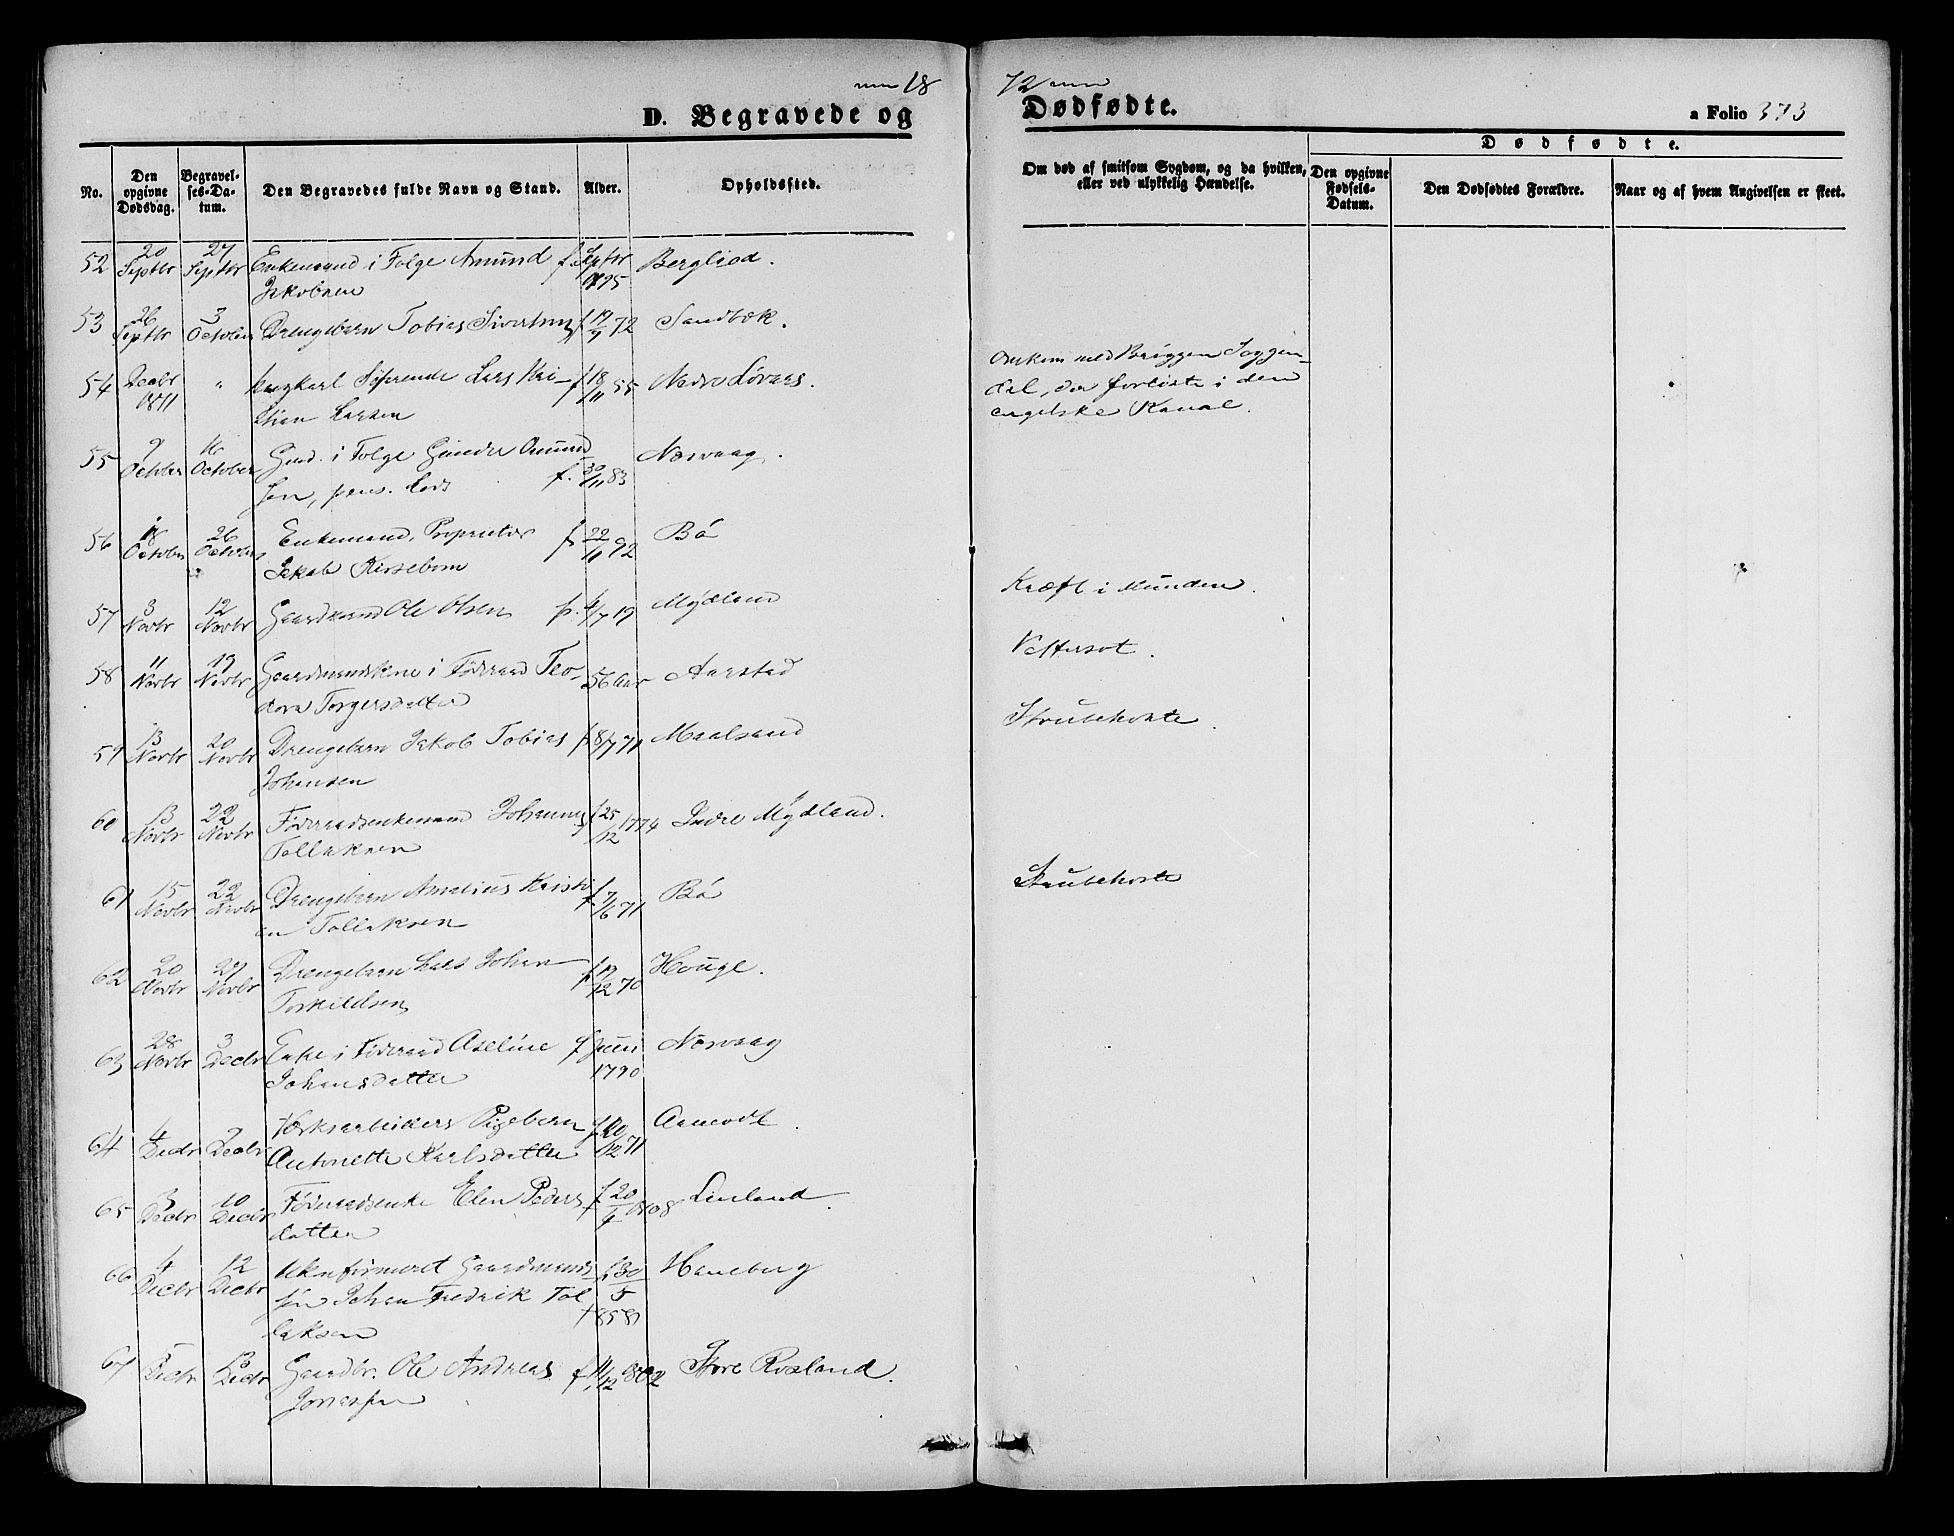 18
72
D. Begravede og
Dødfødte.
a Folio 373
No.
Den opgivne Dødsdag.
Begravelses-Datum.
Den Begravedes fulde Navn og Stand.
Alder.
Opholdssted.
Om død af smitsom Sygdom, og da hvilken, eller ved ulykkelig Hændelse.
Dødfødte.
Den opgivne Fødsels-Datum.
Den Dødfødtes Forældre.
Naar og af hvem Angivelsen er skeet.
52 20 Septbr 27 Septbr Enkemand i Folge Amund f. Septbr 1795 Bergliod.
Jakobsen
53 26 Septbr 3 October Drengebarn Tobias Sivertsen f 19/9 72 Sandbæk.
54 Decbr 1871 " Ungkarl Søfarende Lars Kri- f 18/11 55 Nedre Løvaas.
stian Larsen
Omkom med Briggen Soggen-
dal, der forliste i den
engelske Kanal.
55 9 October 16 October Gmd. i Folge Gunder Amund-
sen, pens. Lods f. 30/11 83 Norvaag.
56 18 October 26 October Enkemand, Proprietær f 22/11 92 Bö
Jakob Kirsebom
57 3 Novbr 12 Novbr Gaardmand Ole Olsen f. 4/7 19 Mydland
Kræft i Munden.
58 11 Novbr 19 Novbr Gaardmandskone i Føderaad Teo- 56 Aar Aarstad
dora Torgersdatter
Vattersot.
59 13 Novbr 20 Novbr Drengebarn Jakob Tobias f 8/7 71 Maalsand
Johansen
Strubehoste.
60 13 Novbr 22 Novbr Føderaadsenkemand Johannes f 25/12 1774 Indre Mydland.
Tollaksen
61 15 Novbr 22 Novbr Drengebarn Amalius Kristi- f 7/6 71 Bö
an Tollaksen
Strubehoste
62 20 Novbr 27 Novbr Drengebarn Lars Johan f 19/12 70 Houge.
Torkildsen
63 28 Novbr 3 Decbr Enke i Føderaad Aseline f Juni 1790 Norvaag
Johansdatter
64 4 Decbr Decbr Værksarbeiders Pigebarn f 20/12 71 Aamodt.
Antonette Karlsdatter
65 3 Decbr 10 Decbr Føderaadsenke Elen Peders- f 20/4 1808 Linland.
datter
66 4 Decbr 12 Decbr Ukonfirmeret Gaardmands- f 30/5 1858 Haneberg
søn Johan Fredrik Tol-
laksen
67 5 Decbr 13 Decbr Gaardbr. Ole Andreas f. 11/12 1802 Store Rosland.
Jonassen